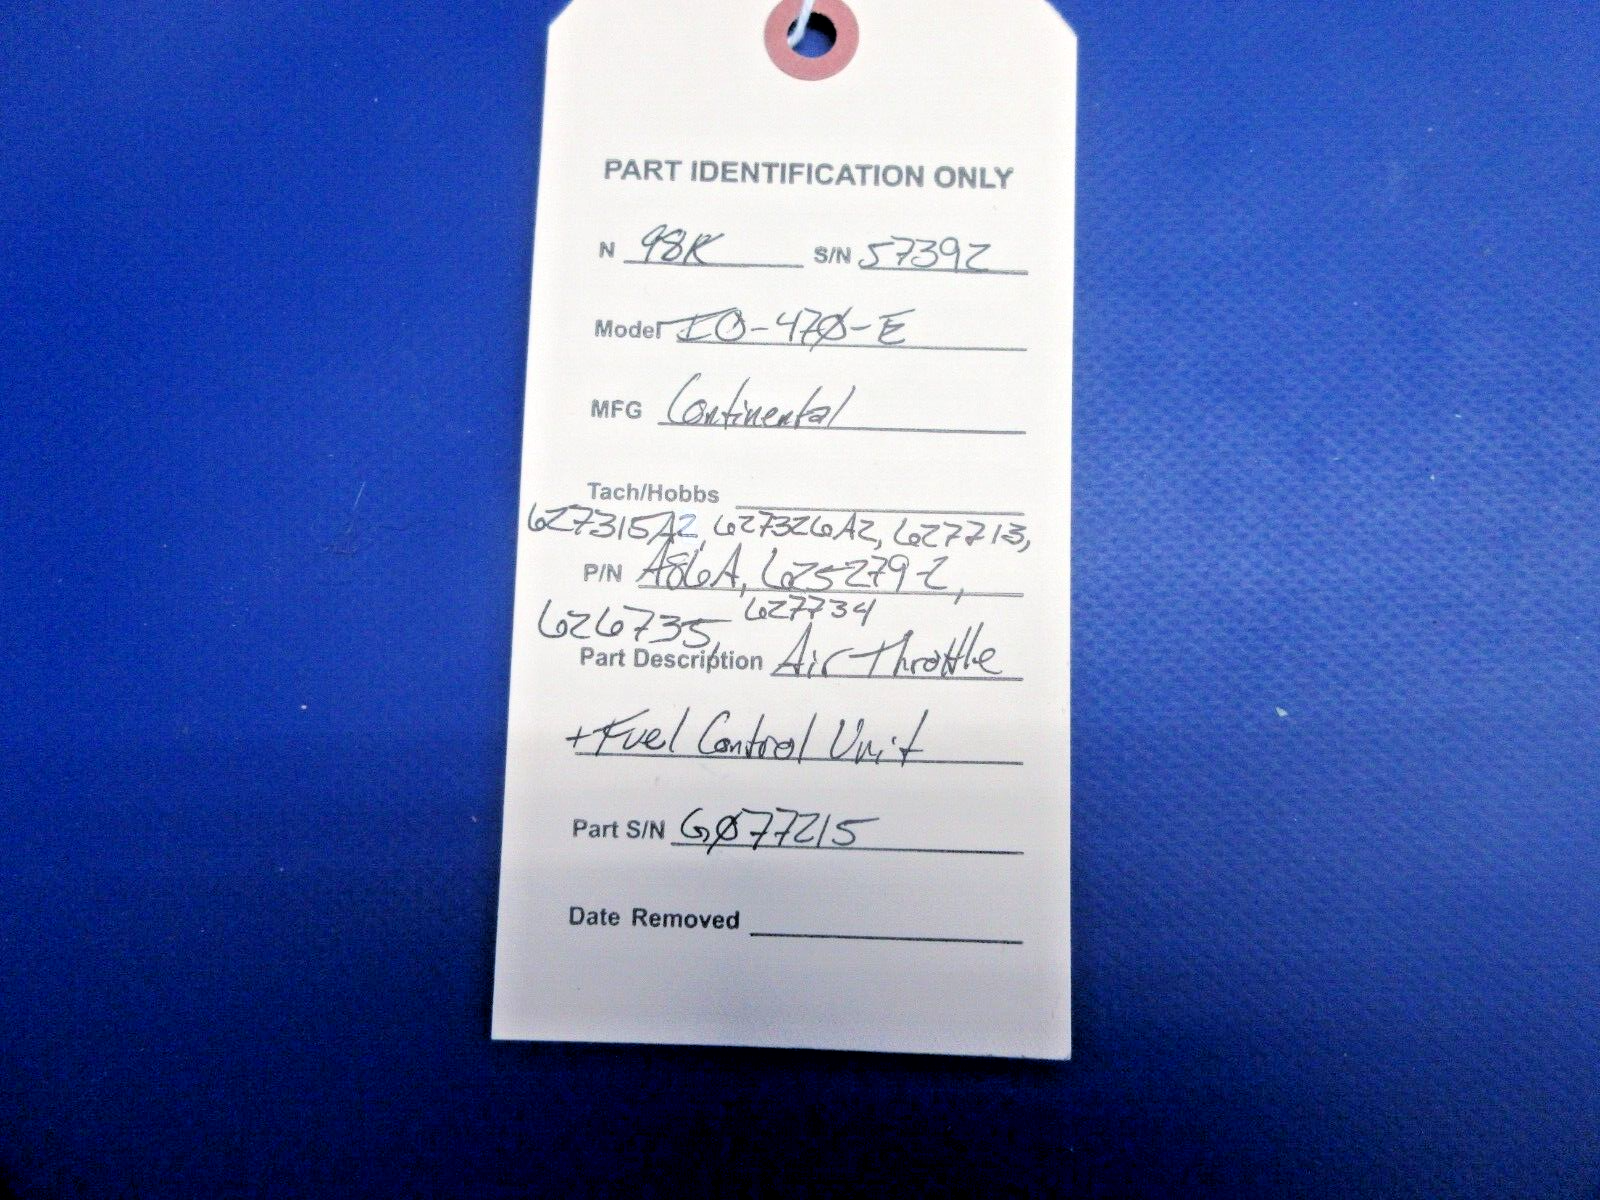 PART IDENTIFICATION ONLY
N 98K S/N 57392
Model IO-47Ø-E
MFG Continental
Tach/Hobbs
627315A2, 627326A2, 627713,
P/N A86A, 625279-2,
626735, 627734
Part Description Air Throttle
+ Fuel Control Unit
Part S/N GØ77215
Date Removed